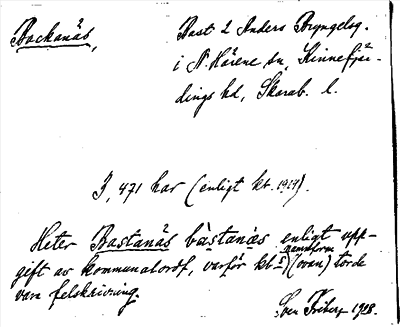 Backanäs,
Bast 2 Anders Bryngelsg.
i N. Härene sn, Kinnefjär-
dings hd, Skarab. l.
I, 471 har (enligt kt. 1917).
Heter Bastanäs bàstanäs enligt upp-
gift av kommunalordf, varför kts namnform (ovan) torde
vara felskrivning.
Sven Friberg 1928.